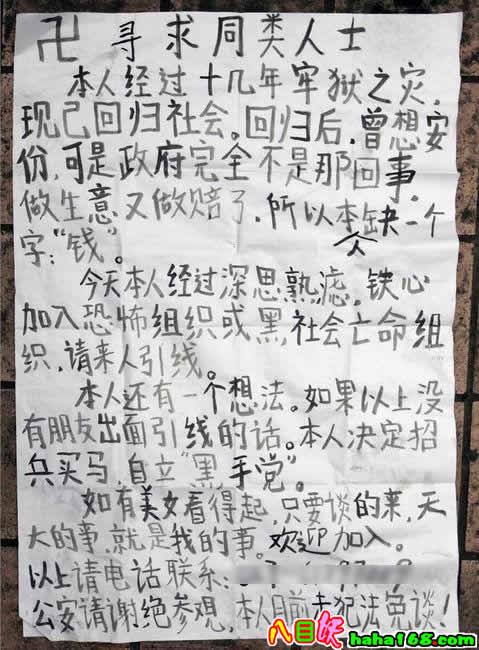 卍 寻求同类人士
本人经过十几年牢狱之灾,
现己回归社会。回归后,曾想安
份,可是政府完全不是那回事。
做生意又做赔了,所以本人缺一个
字:“钱”。
今天本人经过深思熟虑,铁心
加入恐怖组织或黑社会亡命组
织,请来人引线。
本人还有一个想法。如果以上没
有朋友出面引线的话。本人决定招
兵买马,自立“黑手党”。
如有美女看得起,只要谈的来,天
大的事,就是我的事。欢迎加入。
以上请电话联系:
公安请谢绝参观,本人目前未犯法免谈!
八目妖
haha168.com